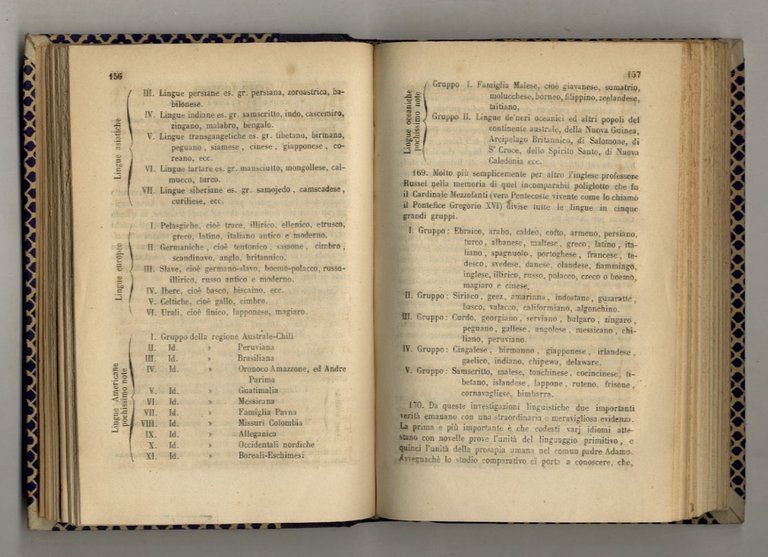 156
Lingue asiatiche
III. Lingue persiane es. gr. persiana, zoroastrica, ba-
bilonese.
IV. Lingue indiane es. gr. samscritto, indo, cascemiro,
zingano, malabro, bengalo.
V. Lingue transgangetiche es. gr. tibetano, birmano,
peguano, siamese, cinese, giapponese, co-
reano, ecc.
VI. Lingue tartare es. gr. mansciutto, mongollese, cal-
mucco, turco.
VII. Lingue siberiane es. gr. samojedo, camscadese,
curiliese, ecc.
Lingue europee
I. Pelasgiche, cioè trace, illirico, ellenico, etrusco,
greco, latino, italiano antico e moderno.
II. Germaniche, cioè teutonico, sassone, cimbro,
scandinavo, anglo, britannico.
III. Slave, cioè germano-slavo, boemo-polacco, russo-
illirico, russo antico e moderno.
IV. Ibere, cioè basco, biscaino, ecc.
V. Celtiche, cioè gallo, cimbro.
VI. Urali, cioè finico, lapponese, magiaro.
Lingue Americane
pochissimo note
I. Gruppo della regione Australe-Chili
II. Id. » Peruviana
III. Id. » Brasiliana
IV. Id. » Oronoco Amazzone, ed Andre
Parima
V. Id. » Guatimalia
VI. Id. » Messicana
VII. Id. » Famiglia Pavna
VIII. Id. » Missuri Colombia
IX. Id. » Alleganica
X. Id. » Occidentali nordiche
XI. Id. » Boreali-Eschimesi
157
Lingue oceaniche
pochissimo note
Gruppo I. Famiglia Malese, cioè giavanese, sumatrio,
molucchese, borneo, filippino, zeelandese,
taitiano.
Gruppo II. Lingue de'neri oceanici ed altri popoli del
continente australe, della Nuova Guinea,
Arcipelago Britannico, di Salomone, di
S' Croce, dello Spirito Santo, di Nuova
Caledonia ecc.
169. Molto più semplicemente per altro l'inglese professore
Russel nella memoria di quel incomparabil poliglotto che fu
il Cardinale Mezzofanti (vera Pentecoste vivente come lo chiamò
il Pontefice Gregorio XVI) divise tutte le lingue in cinque
grandi gruppi.
I. Gruppo: Ebraico, arabo, caldeo, cofto, armeno, persiano,
turco, albanese, maltese, greco, latino, ita-
liano, spagnuolo, portoghese, francese, te-
desco, svedese, danese, olandese, fiammingo,
inglese, illirico, russo, polacco, czeco o boemo,
magiaro e cinese.
II. Gruppo: Siriaco, geez, amarinna, indostano, guzaratte,
basco, valacco, californiano, algonchino.
III. Gruppo: Curdo, georgiano, serviano, bulgaro, zingaro,
peguano, gallese, angolese, messicano, chi-
liano, peruviano.
IV. Gruppo: Cingalese, birmanno, giapponese, irlandese,
gaelico, indiano, chipewa, delaware.
V. Gruppo: Samscritto, malese, tonchinese, cocincinese, ti-
betano, islandese, lappone, ruteno, frisone,
cornavagliese, bimbarra.
170. Da queste investigazioni linguistiche due importanti
verità emanano con una straordinaria e meravigliosa evidenza.
La prima e più importante è che codesti varj idiomi atte-
stano con novelle prove l'unità del linguaggio primitivo, e
quinci l'unità della prosapia umana nel comun padre Adamo.
Avvegnachè lo studio comparativo ci porta a conoscere, che,